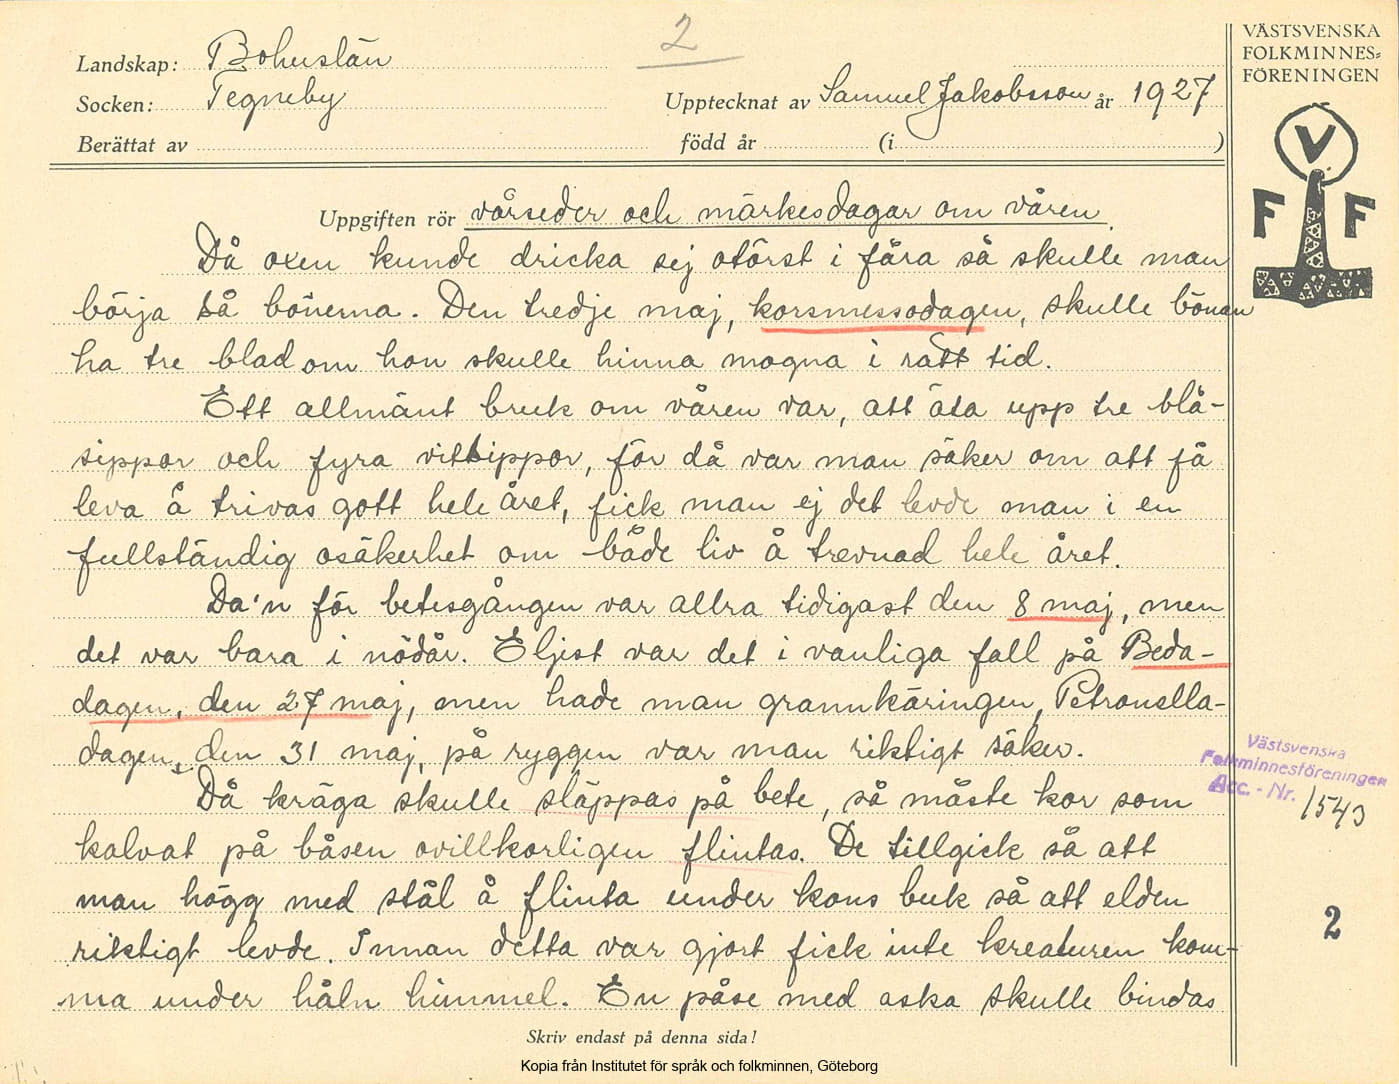 2
VÄSTSVENSKA
FOLKMINNES=
FÖRENINGEN
Landskap: Bohuslän
Socken: Tegneby
Upptecknat av Samuel Jakobsson år 1927
Berättat av
född år (i )
V
F F
Uppgiften rör vårseder och märkesdagar om våren.
Då oxen kunde dricka sej otörst i fåra så skulle man
börja så bönerna. Den tredje maj, korsmessodagen, skulle bönan
ha tre blad om hon skulle hinna mogna i rätt tid.
Ett allmänt bruk om våren var, att äta upp tre blå-
sippor och fyra vitsippor, för då var man säker om att få
leva å trivas gott hele året, fick man ej det levde man i en
fullständig osäkerhet om både liv å trevnad hele året.
Da'n för betesgången var allra tidigast den 8 maj, men
det var bara i nödår. Eljest var det i vanliga fall på Beda-
dagen, den 27 maj, men hade man grannkäringen, Petronella-
dagen, den 31 maj, på ryggen var man riktigt säker.
Då kräga skulle släppas på bete, så måste kor som
kalvat på båsen ovillkorligen flintas. De tillgick så att
man högg med stål å flinta under kons buk så att elden
riktigt levde. Innan detta var gjort fick inte kreaturen kom-
ma under håln himmel. En påse med aska skulle bindas
Västsvenska
Folkminnesföreningen
Acc. - Nr. 1543
2
Skriv endast på denna sida!
Kopia från Institutet för språk och folkminnen, Göteborg